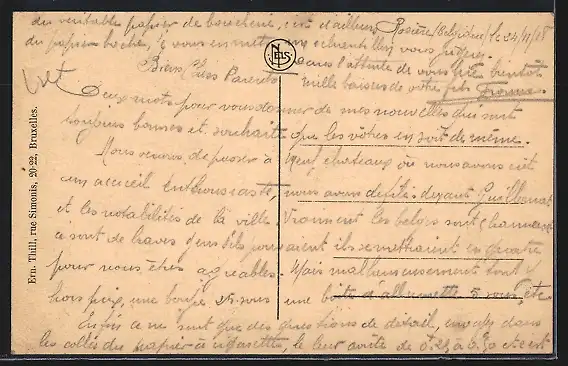 Rosière (Belgique) le 24/11/18
Biens Chers Parents
Deux mots pour vous donner de mes nouvelles qui sont
toujours bonnes et souhaite que les vôtres en soit de même.
Nous venons de passer à Neuf chateaux où nous avons eut
un accueil enthousiaste, nous avons défilés devant Guillaumat
et les notabilités de la ville. Vraiment les belges sont charmants
ce sont de braves gens s'ils pouvaient ils se mettraient en quatre
pour nous êtres agréables. Mais malheureusement tout y
hors prix, une bougie 25 sous une boite d'allumette 5 sous, etc.
Enfin ce ne sont que des questions de détail, envoyez dans
les colles des papier à cigarettes, le leur coûte de 0,25 à 0,30 et c'est
du véritable papier de boucherie, c'est d'ailleurs
du papier boche, je vous en mets un echantillon vous jugerez.
Dans l'attente de vous lire bientôt
mille baisers de votre fils
NELS
Ern. Thill, rue Simonis, 20-22, Bruxelles.